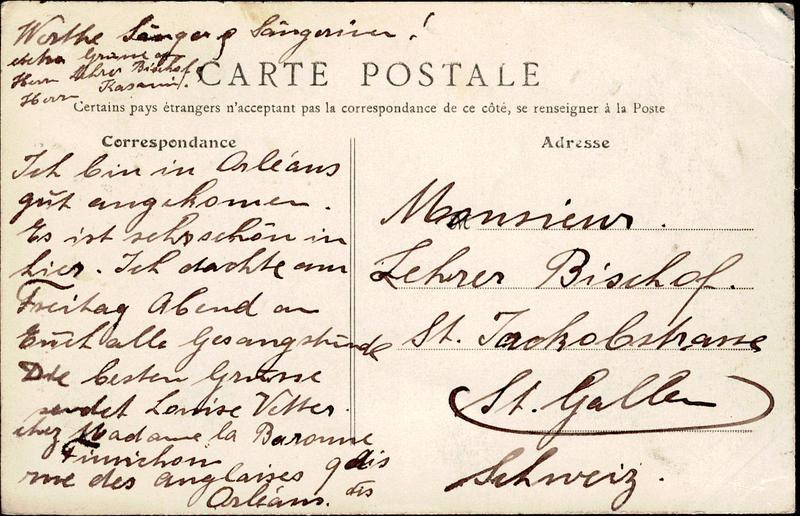 Werthe Sänger & Sängerinen!
extra Grüsse an
Herrn Lehrer Bischof,
Herrn
CARTE POSTALE
Certains pays étrangers n'acceptant pas la correspondance de ce côté, se renseigner à la Poste
Correspondance
Ich bin in Orléans
gut angekomen.
Es ist sehr schön in
hier. Ich dachte am
Freitag Abend an
Euch alle Gesangstunde
Die besten Grüsse
sendet Louise Vetter.
chez Madame la Baronne
rue des anglaises 9
Orléans.
Adresse
Monsieur.
Lehrer Bischof.
St. Jackobstrasse
St. Gallen
Schweiz.